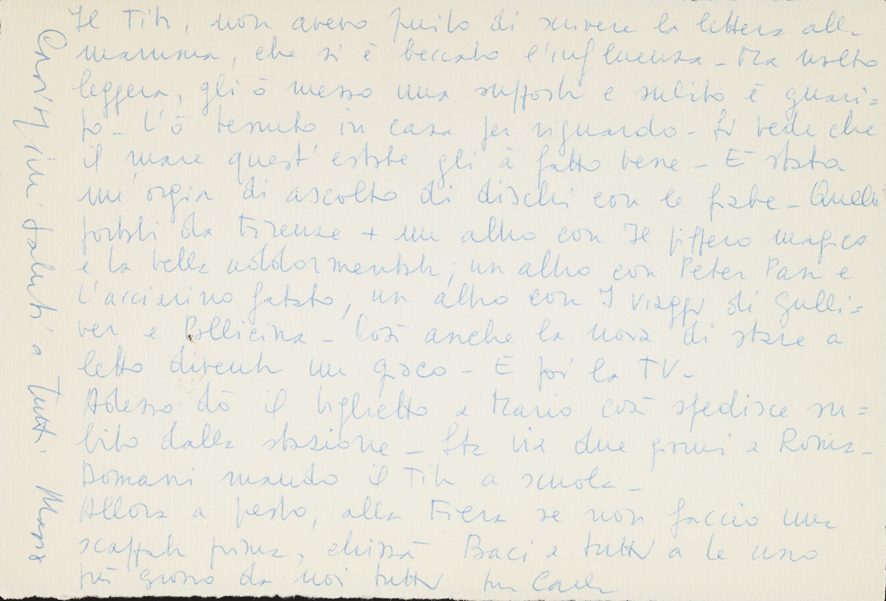 Il Titi, non avevo finito di scrivere la lettera alla
mamma, che si è beccato l'influenza - Ma molto
leggera, gli ò messo una supposta e subito è guari=
to - L'ò tenuto in casa per riguardo - Si vede che
il mare quest'estate gli à fatto bene - È stata
un'orgia di ascolto di dischi con le fiabe - Quelli
portati da Firenze + un altro con Il piffero magico
e la bella addormentata; un altro con Peter Pan e
l'acciarino fatato; un altro con I viaggi di Gulli=
ver e Pollicina - Così anche la noia di stare a
letto diventa un gioco - E poi la TV -
Adesso dò il biglietto a Mario così spedisce su=
bito dalla stazione - Sta via due giorni a Roma -
Domani mando il Titi a scuola -
Allora a presto, alla Fiera se non faccio una
scappata prima, chissà Baci a tutti a te uno
più grosso da noi tutti tua Carla
Carissimi saluti a tutti. Mario